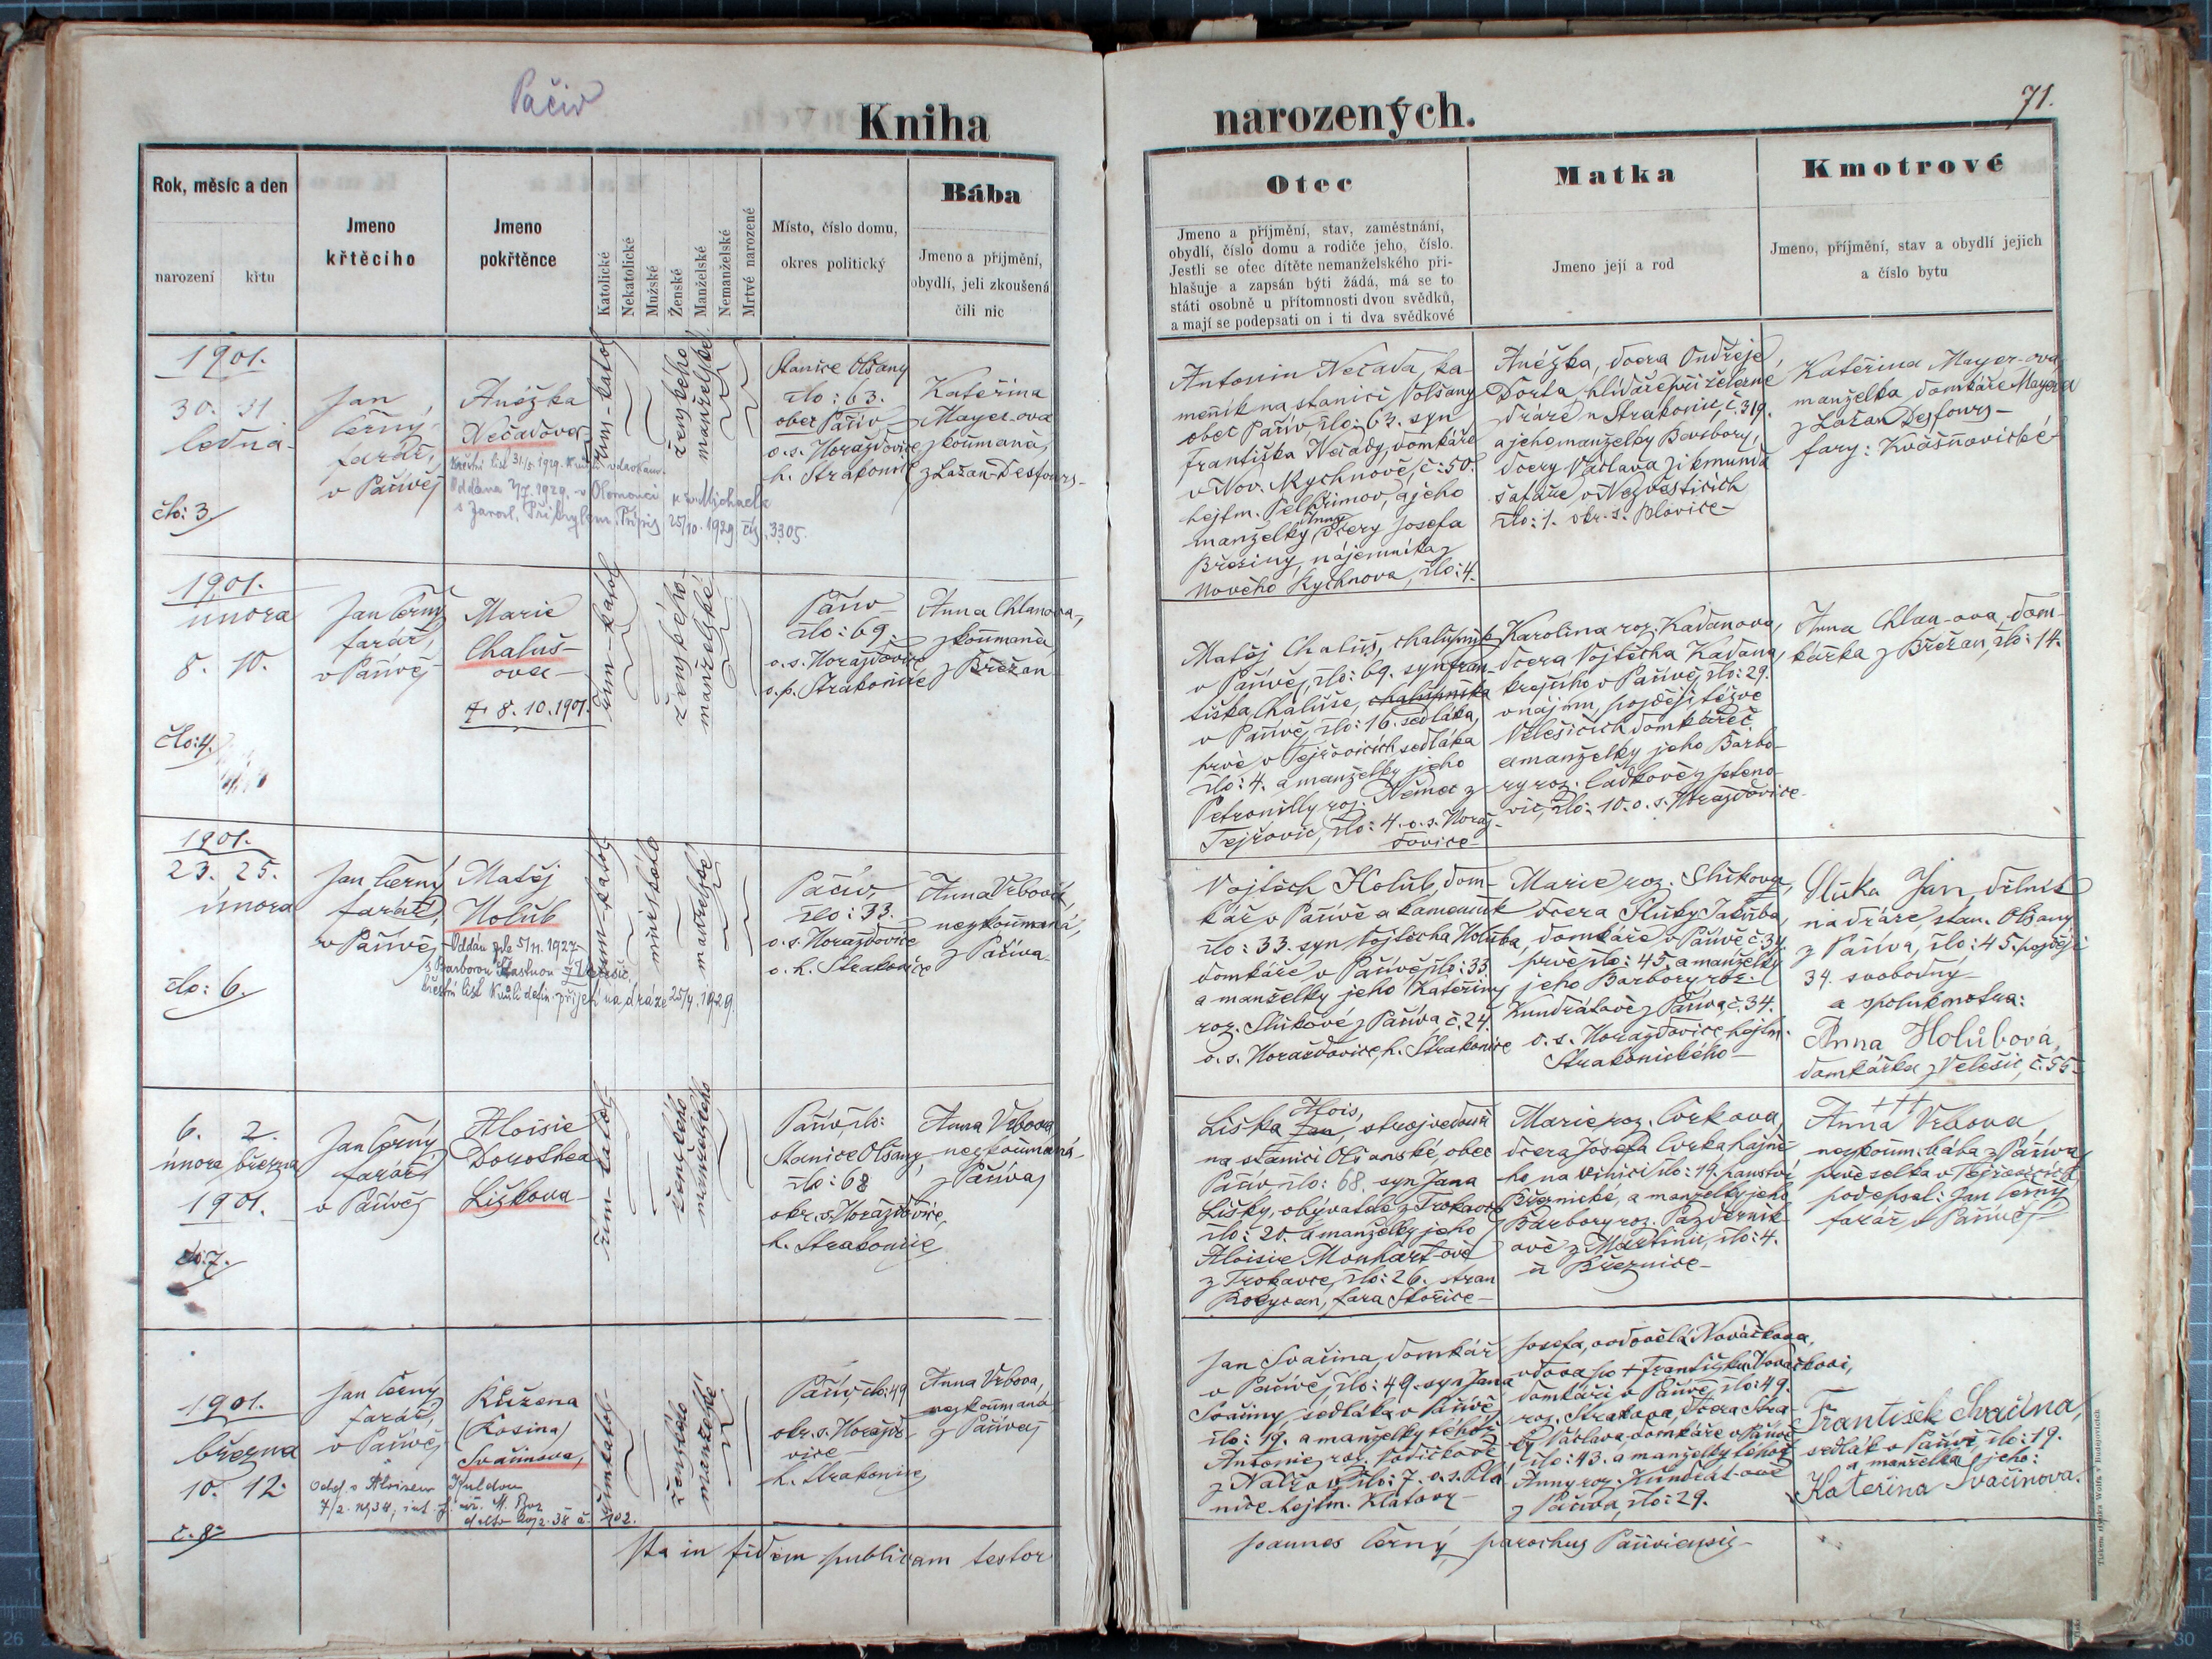 Pačiv
Kniha
narozených.
71.
Rok, měsíc a den
narození
křtu
Jmeno
křtěcího
Jmeno
pokřtěnce
Katolické
Nekatolické
Mužské
Ženské
Manželské
Nemanželské
Mrtvě narozené
Místo, číslo domu,
okres politický
Bába
Jmeno a přijmění,
obydlí, jeli zkoušená
čili nic
Otec
Jmeno a příjmění, stav, zaměstnání,
obydlí, číslo domu a rodiče jeho, číslo.
Jestli se otec dítěte nemanželského při-
hlašuje a zapsán býti žádá, má se to
státi osobně u přítomnosti dvou svědků,
a mají se podepsati on i ti dva svědkové
Matka
Jmeno její a rod
Kmotrové
Jmeno, příjmění, stav a obydlí jejich
a číslo bytu
1901.
30. 31
ledna
člo: 3.
Jan
Černý,
farář,
v Pačivě
Anéžka
Nečadova
Křestní list 31/5. 1929.
Oddána 7/7. 1929. v Olomouci u sv. Michaela
s Jarosl. Přibylem. Přípis 25/10. 1929 čís. 3305.
řím-katol
ženského
manželské
Stanice Olšany
člo: 63.
obec Pačiv
o. s. Horažďovice
h. Strakonic
Kateřina
Mayer-ova
zkoumaná,
z Lažan-Desfours-
Antonin Nečada, ka-
menik na stanici Volšany
obec Pačiv člo: 63. syn
Františka Nečady, domkáře
v Nov. Rychnově, č: 50.
hejtm. Pelhřimov, a jeho
manželky Anny dcery Josefa
Březiny, nájemníka z
Nového Rychnova, člo: 4.
Anéžka, dcera Ondřeje
Dorta, hlídače při železné
dráze u Strakonic, č. 319.
a jeho manželky Barbory,
dcery Václava Zikmunda
šafáře v Nezvěsticích
člo: 1. okr. s. Blovice-
Kateřina Mayer-ova
manželka domkáře Mayera
z Lažan Desfours-
fary: Kvášňovické
1901.
února
8. 10.
člo: 4.
Jan Černý
farář,
v Pačivě
Marie
Chaluš-
ova-
† 8. 10. 1901.
řím-katol
ženského
manželské
Pačiv
člo: 69
o. s. Horažďovice
o. p. Strakonice
Anna Chlanova,
zkoumaná,
z Břežan
Matěj Chaluš, chalupník
v Pačivě, člo: 69. syn Fran-
tiška Chaluše, chalupníka
v Pačivě, člo: 16. sedláka,
prvé v Tejřovicích sedláka
člo: 4. a manželky jeho
Petronilly roz. Němec z
Tejřovic, člo: 4. o. s. Horaž-
ďovice-
Karolina roz. Kaďanova,
dcera Vojtěcha Kaďana,
krejčího v Pačivě, člo: 29.
v nájmu, později též ve
Velešicích domkáře
a manželky jeho Barbo-
ry roz. Čadkové z Jeteno-
vic, člo: 10. o. s. Horažďovice-
Anna Chlan-ova, dom-
kářka z Břežan, člo: 14.
1901.
23. 25.
února
člo: 6.
Jan Černý
farář,
v Pačivě
Matěj
Holub
Oddán zde 5/11. 1927
s Barborou Šťastnou z Velešic
křestní list kvůli defin. přijetí na dráze 25/4. 1929.
řím-katol
mužského
manželské
Pačiv
člo: 33.
o. s. Horažďovice
o. h. Strakonice
Anna Vrbová,
nezkoumaná,
z Pačiva
Vojtěch Holub, dom-
kář v Pačivě a kameník
člo: 33. syn Vojtěcha Holuba
domkáře v Pačivě člo: 33.
a manželky jeho Kateřiny
roz. Slukové z Pačiva č. 24.
o. s. Horažďovice, h. Strakonice
Marie roz. Slukova,
dcera Sluky Jakuba,
domkáře v Pačivě č. 34.
prvé člo: 45. a manželky
jeho Barbory roz.
Kundrátové z Pačiva, č. 34.
o. s. Horažďovice, hejtm.
Strakonického-
Sluka Jan, dělník
na dráze, stan. Olšany
z Pačiva, člo: 45. později
34. svobodný
a spolukmotra:
Anna Holubová,
domkářka z Velešic, č. 55-
6. 2.
února března
1901.
čo: 7.
Jan Černý
farář
v Pačivě
Aloisie
Dorothea
Liškova-
řím katol
ženského
manželského
Pačiv, čo:
Stanice Olšany,
čo: 68
okr. s. Horažďovice,
h. Strakonice
Anna Vrbova
nezkoumaná-
z Pačiva,
Liška Jan Alois, strojvedoucí
na stanici Olšanské, obec
Pačiv čo: 68. syn Jana
Lišky, obývatele z Trokavce
čo: 20. a manželky jeho
Aloisie Mouhart-ové
z Trokavce, čo: 26. stran
Rokycan, fara Skořice-
Marie roz. Cvrkova,
dcera Josefa Cvrka hájné-
ho na Vihnici čo: 19. panství
Březnické, a manželky jeho
Barbory roz. Pazderník-
ové z Martinic, čo: 4.
u Březnice-
†††
Anna Vrbova
nezkoum. bába z Pačiva
prvé selka v Tejřovicích
podepsal: Jan Černý
farář v Pačivě
1901.
března
10. 12.
č. 8.
Jan Černý
farář,
v Pačivě
Růžena
(Rosina)
Svačinova,
řím katol-
ženského
manželské
Pačiv, čo: 49
okr. s. Horažďo-
vice
h. Strakonice
Anna Vrbova,
nezkoumaná
z Pačiva
Jan Svačina, domkář
v Pačivě, čo: 49. syn Jana
Svačiny, sedláka v Pačivě,
čo: 19. a manželky téhož
Antonie, roz. Vodičkové
z Nalžov čo: 7. o. s. Pla-
nice hejtm. Klatovy-
Josefa, ovdovělá Nováčkova,
vdova po † Františku Nováčkovi,
domkáři v Pačivě, čo: 49.
roz. Strakova, dcera Stra-
ky Václava domkáře v Pačivě
čo: 43. a manželky téhož
Anny roz. Kundrát-ové
z Pačiva, čo: 29.
František Svačina,
sedlák v Pačivě, čo: 19.
a manželka jeho:
Kateřina Svačinova.
Ita in fidem publicam testor
Joannes Černý parochus Pačiviensis-